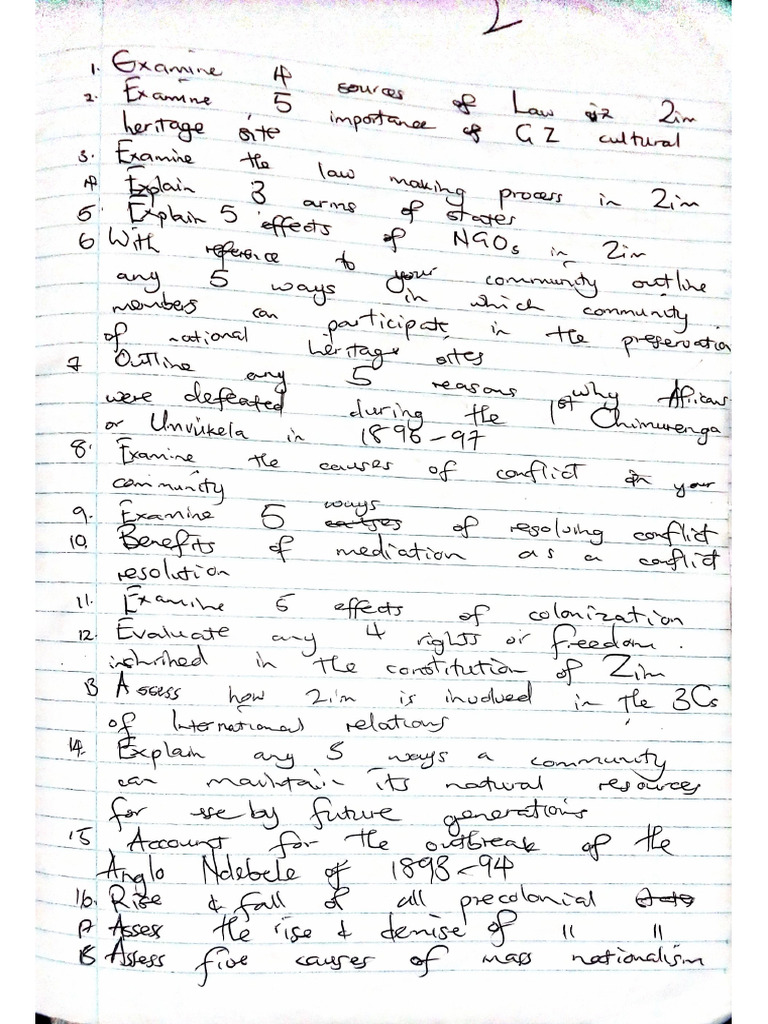 2
1. Examine 4 sources of Law in Zim
2. Examine 5 importance of GZ cultural
heritage site
3. Examine the law making process in Zim
4 Explain 3 arms of states
5. Explain 5 effects of NGOs in Zim
6 With reference to your community outline
any 5 ways in which community
members can participate in the preservation
of national heritage sites
7 Outline any 5 reasons why Africans
were defeated during the 1st Chimurenga
or Umvukela in 1896-97
8. Examine the causes of conflict in your
community
9. Examine 5 ways causes of resolving conflict
10. Benefits of mediation as a conflict
resolution
11. Examine 5 effects of colonization
12. Evaluate any 4 rights or freedom.
inshrined in the constitution of Zim
13 Assess how Zim is involved in the 3Cs
of International relations
14. Explain any 5 ways a community
can maintain its natural resources
for use by future generations
15 Account for the outbreak of the
Anglo Ndebele of 1893-94
16. Rise & fall of all precolonial
17 Assess the rise & demise of " "
18 Assess five causes of mass nationalism